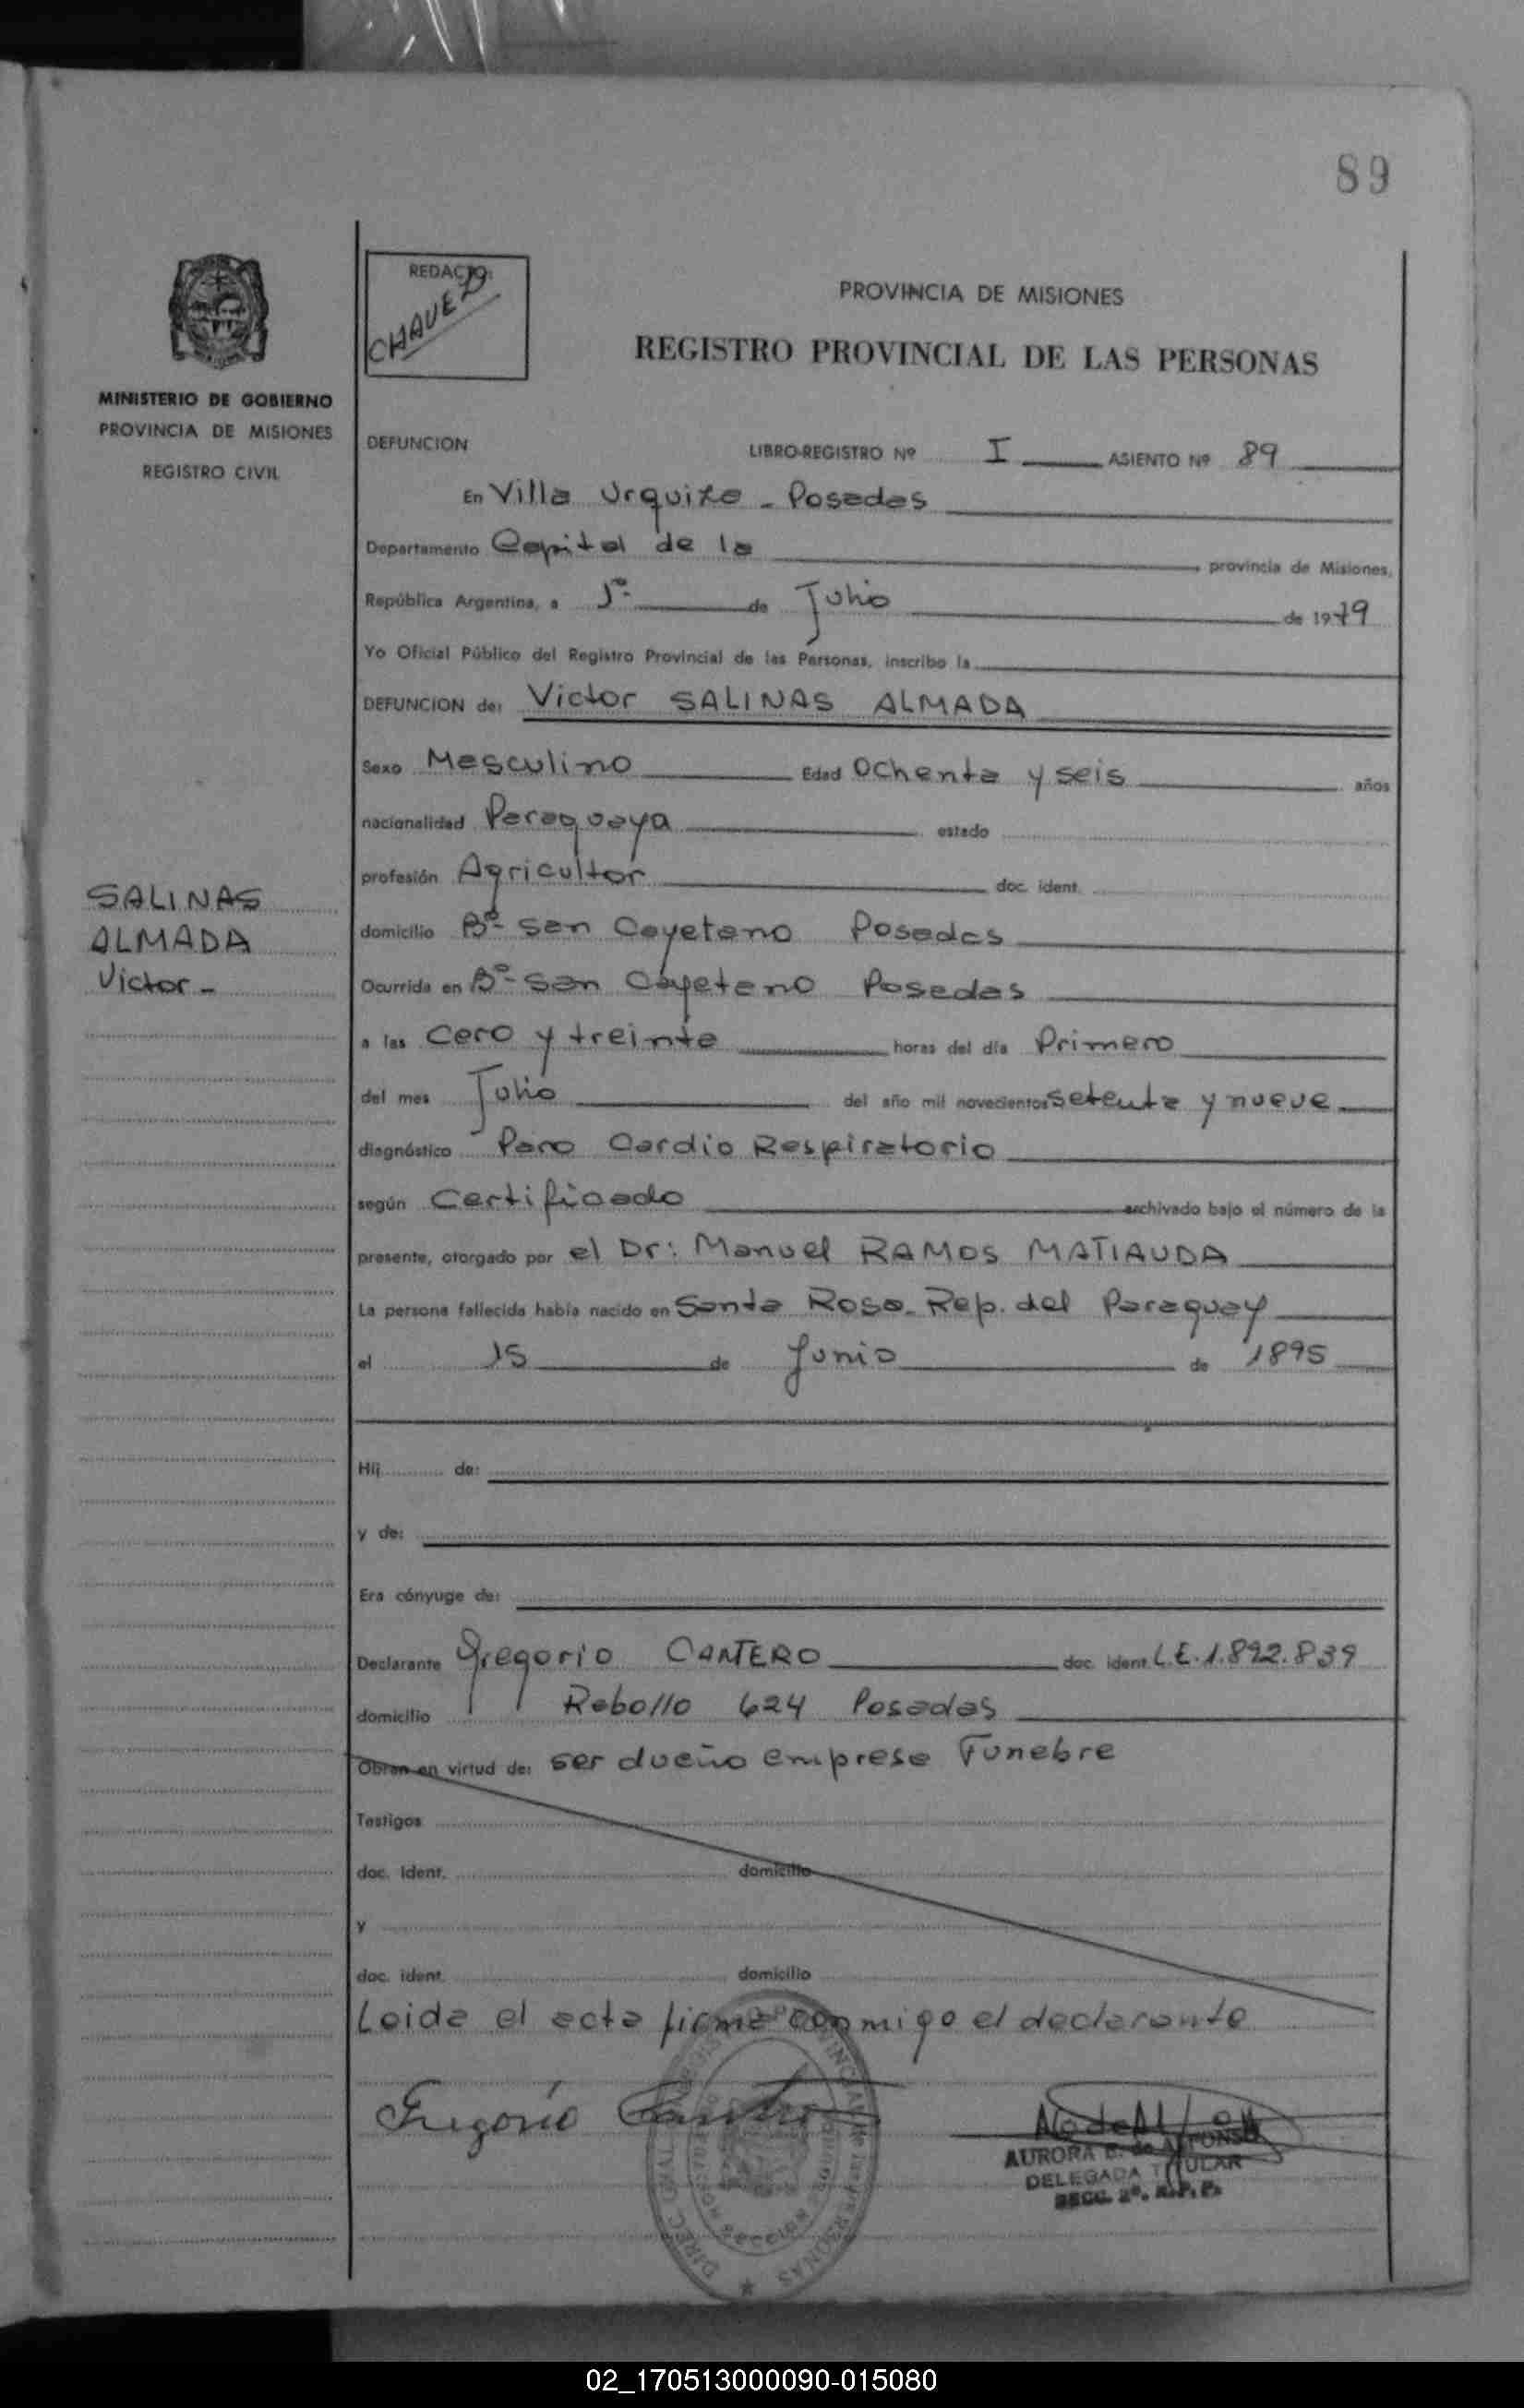 89
MINISTERIO DE GOBIERNO
PROVINCIA DE MISIONES
REGISTRO CIVIL
REDACTO:
CHAVEZ
PROVINCIA DE MISIONES
REGISTRO PROVINCIAL DE LAS PERSONAS
DEFUNCION LIBRO-REGISTRO Nº I ASIENTO Nº 89
En Villa Urquiza - Posadas
Departamento Capital de la provincia de Misiones,
República Argentina, a 1º de Julio de 1979
Yo Oficial Público del Registro Provincial de las Personas, inscribo la
DEFUNCION de: Victor SALINAS ALMADA
Sexo Masculino Edad Ochenta y seis años
nacionalidad Paraguaya estado
profesión Agricultor doc. ident.
SALINAS
ALMADA
Victor -
domicilio Bº San Cayetano Posadas
Ocurrida en Bº San Cayetano Posadas
a las Cero y treinta horas del día Primero
del mes Julio del año mil novecientos setenta y nueve
diagnóstico Paro Cardio Respiratorio
según Certificado archivado bajo el número de la
presente, otorgado por el Dr: Manuel RAMOS MATIAUDA
La persona fallecida había nacido en Santa Rosa - Rep. del Paraguay
el 15 de Junio de 1895
Hij de:
y de:
Era cónyuge de:
Declarante Gregorio CANTERO doc. ident. L.E. 1.892.839
domicilio Rebollo 624 Posadas
Obran en virtud de: ser dueño empresa Funebre
Testigos
doc. ident. domicilio
y
doc. ident. domicilio
Leida el acta firma conmigo el declarante
Gregorio Cantero
AURORA E. de ALFONSO
DELEGADA TITULAR
SECC. 2ª. R.P.P.
02_170513000090-015080